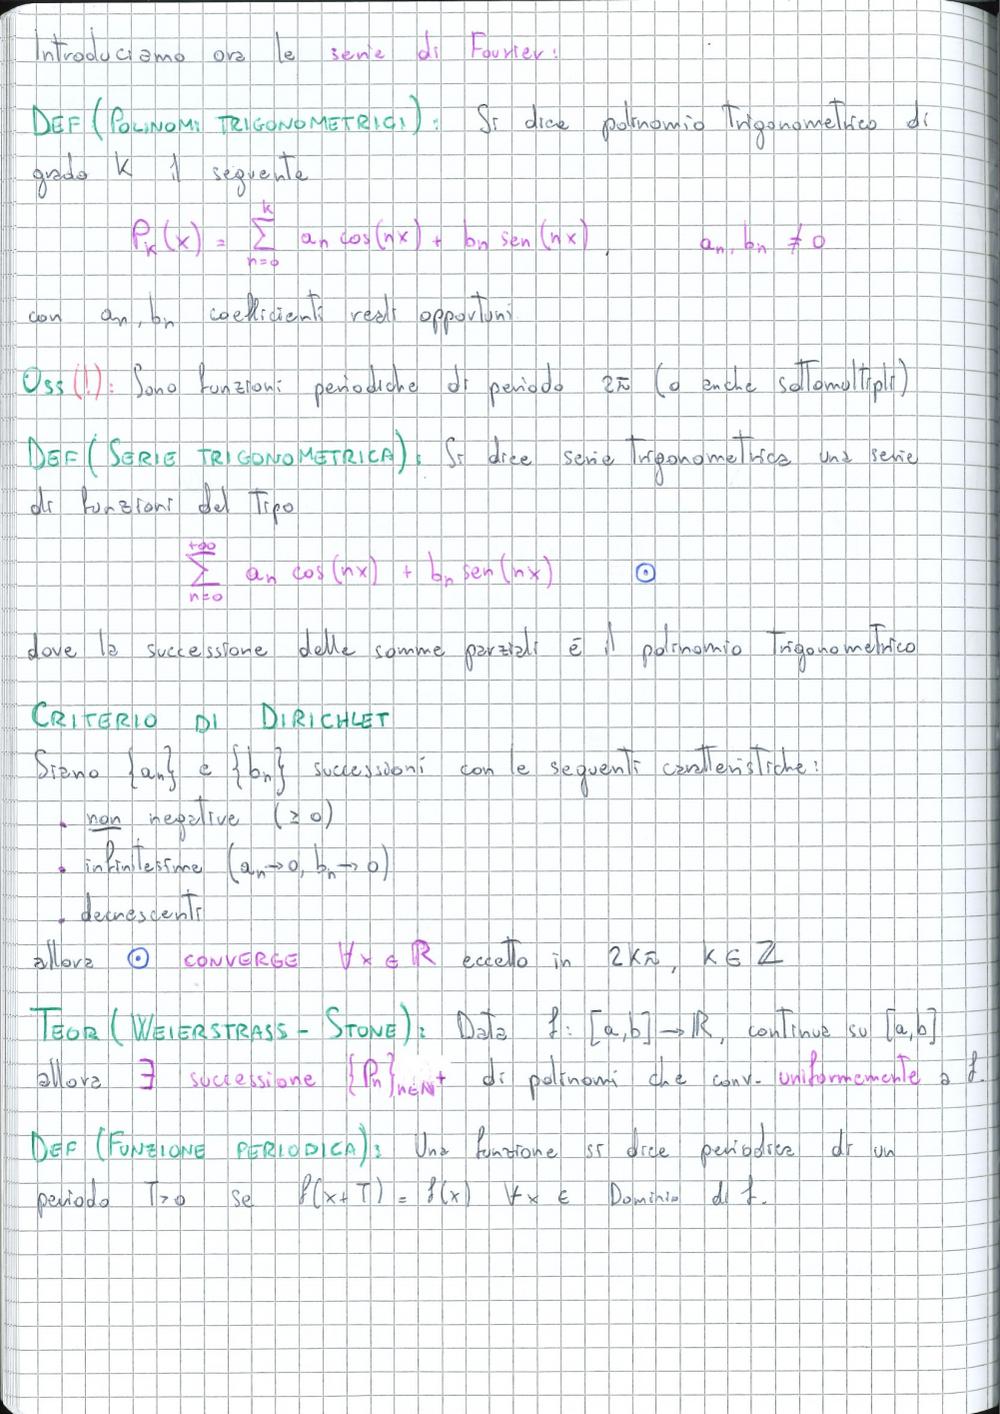 Introduciamo ora le serie di Fourier:
DEF (POLINOMI TRIGONOMETRICI): Si dice polinomio trigonometrico di
grado K il seguente
P_K(x) = \sum_{n=0}^{K} a_n cos(nx) + b_n sen(nx), a_n, b_n ≠ 0
con a_n, b_n coefficienti reali opportuni
Oss(!): Sono funzioni periodiche di periodo 2π (o anche sottomultipli)
DEF (SERIE TRIGONOMETRICA): Si dice serie trigonometrica una serie
di funzioni del tipo
\sum_{n=0}^{+∞} a_n cos(nx) + b_n sen(nx) ⊙
dove la successione delle somme parziali è il polinomio trigonometrico
CRITERIO DI DIRICHLET
Siano {a_n} e {b_n} successioni con le seguenti caratteristiche:
• non negative (≥ 0)
• infinitesime (a_n→0, b_n→0)
• decrescenti
allora ⊙ CONVERGE ∀x ∈ ℝ eccetto in 2Kπ, K ∈ ℤ
TEOR (WEIERSTRASS - STONE): Data f: [a,b] → ℝ, continua su [a,b]
allora ∃ successione {P_n}_{n∈ℕ^+} di polinomi che conv. uniformemente a f.
DEF (FUNZIONE PERIODICA): Una funzione si dice periodica di un
periodo T>0 se f(x+T) = f(x) ∀x ∈ Dominio di f.